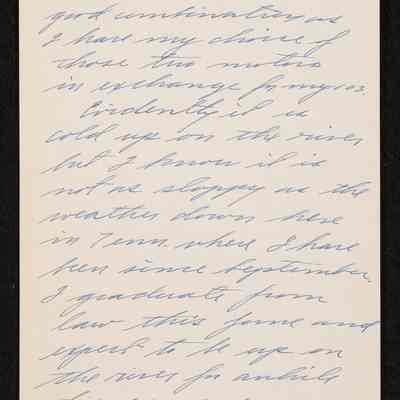 good combination as
I have my choice of
those two motors
in exchange for my 103.
Evidently it is
cold up on the river
but I know it is
not as sloppy as the
weather down here
in Tenn. where I have
been since September.
I graduate from
law this June and
expect to be up on
the river for awhile